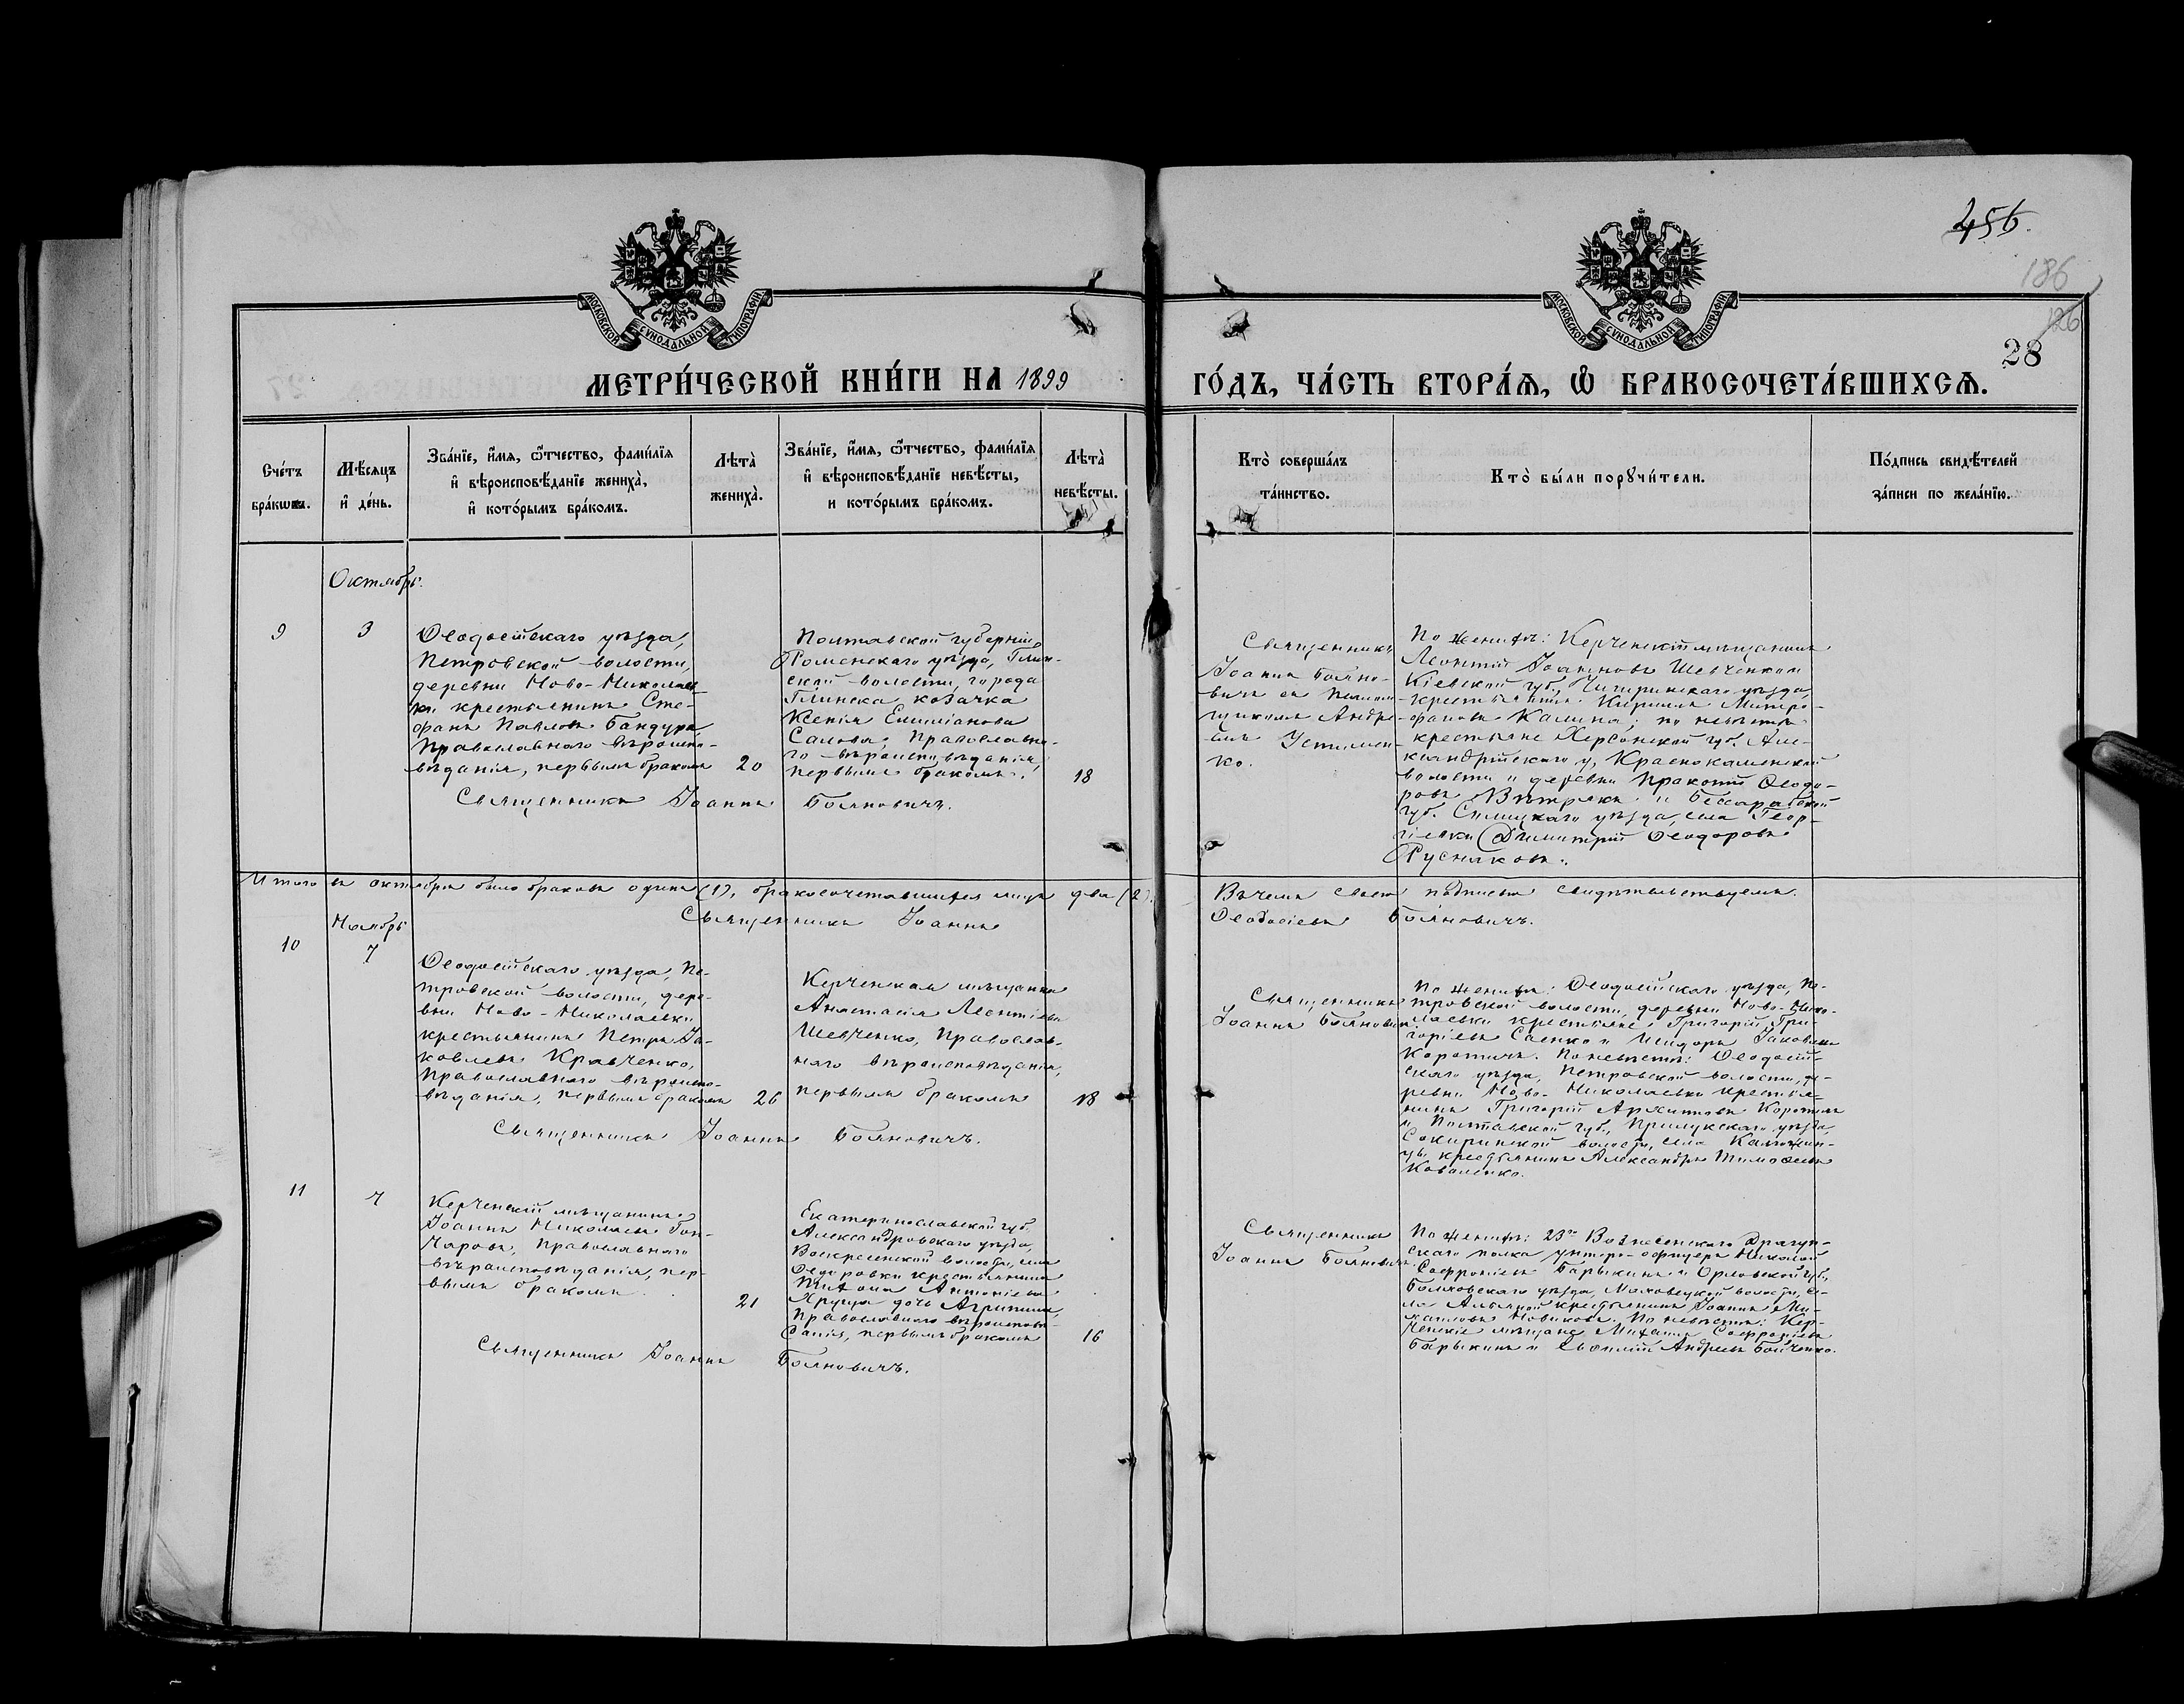 456.
186
126
28
МОСКОВСКОЙ СѴНОДАЛЬНОЙ ТИПОГРАФІИ
МОСКОВСКОЙ СѴНОДАЛЬНОЙ ТИПОГРАФІИ
МЕТРИ́ЧЕСКОЙ КНИ́ГИ НА 1899
ГО́ДЪ, ЧА́СТЬ ВТОРА́Ѧ, Ѡ҆ БРАКОСОЧЕТА́ВШИХСѦ.
Сче́тъ
бра́кѡвъ.
Мѣ́сяцъ
и҆ де́нь.
Зва́нїе, и҆́мя, ѻ҆́тчество, фами́лїя
и҆ вѣроисповѣ́данїе жениха̀,
и҆ кото́рымъ бра́комъ.
Лѣта̀
жениха̀.
Зва́нїе, и҆́мя, ѻ҆́тчество, фами́лїя
и҆ вѣроисповѣ́данїе невѣ́сты,
и кото́рымъ бра́комъ.
Лѣта̀
невѣ́сты.
Кто̀ соверша́лъ
та́инство.
Кто̀ бы́ли порꙋчи́тели.
По́дпись свидѣ́телей
за́писи по жела́нїю.
Октябрь.
9
3
Ѳеодосійскаго уѣзда,
Петровской волости,
деревни Ново-Николаев-
ки крестьянинъ Сте-
фанъ Павловъ Бандура,
Православнаго вѣроиспо-
вѣданія, первымъ бракомъ
20
Полтавской губерніи
Роменскаго уѣзда, Глин-
ской волости, города
Глинска козачка
Ксенія Емиліанова
Православна-
го вѣроисповѣданія,
первымъ бракомъ.
18
Священникъ Іоаннъ Бояновичъ.
Священникъ
Іоаннъ Бояно-
вичъ съ псалом-
щикомъ Андре-
емъ Устимен-
ко.
По женихѣ: Керченскій мѣщанинъ
Леонтій Іоанновъ Шевченко и
Кіевской губ., Чигиринскаго уѣзда,
крестьянинъ Кириллъ Митро-
фановъ Калина; по невѣстѣ
крестьяне Херсонской губ. Але-
ксандрійскаго у, Краснокаменской
волости и деревни Прокопій Ѳеодо-
ровъ Вѣтрякъ и Бессарабской
губ. уѣзда, села Геор-
гіевки Димитрій Ѳеодоровъ
Русняковъ.
Итого въ октябрѣ было браковъ одинъ (1), бракосочетавшихся лицъ два (2).
Въ чемъ своею подписью свидѣтельствуемъ.
Священникъ Іоаннъ
Ѳеодосіевъ Бояновичъ.
Ноябрь
10
7
Ѳеодосійскаго уѣзда, Пе-
тровской волости, дере-
вни Ново-Николаевки
крестьянинъ Петръ Іа-
ковлевъ Кравченко,
Православнаго вѣроиспо-
вѣданія, первымъ бракомъ
26
Керченская мѣщанка
Анастасія Леонтіева
Шевченко, Православ-
наго вѣроисповѣданія,
первымъ бракомъ
18
Священникъ Іоаннъ Бояновичъ.
Священникъ
Іоаннъ Бояновичъ.
По женихѣ: Ѳеодосійскаго уѣзда, Пе-
тровской волости, деревни Ново-Нико-
лаевки крестьяне: Григорій Гри-
горіевъ Саенко и Исидоръ Іаковлевъ
Коротичъ. По невѣстѣ: Ѳеодосій-
скаго уѣзда, Петровской волости, де-
ревни Ново-Николаевки крестья-
нинъ Григорій Архиповъ Коротичъ
и Полтавской губ., Прилукскаго уѣзда,
Сокиринской волости, села Калюжин-
цы крестьянинъ Александръ Тимоѳеевъ
Коваленко.
11
7
Керченскій мѣщанинъ
Іоаннъ Николаевъ Гон-
чаровъ, Православнаго
вѣроисповѣданія, пер-
вымъ бракомъ.
21
Екатеринославской губ.
Александровскаго уѣзда,
Воскресенской волости, села
Ѳедоровки крестьянина
Антоніева
дочь Агрипина,
Православнаго вѣроисповѣ-
данія, первымъ бракомъ
16
Священникъ Іоаннъ Бояновичъ.
Священникъ
Іоаннъ Бояновичъ.
По женихѣ: 23го Вознесенскаго Драгун-
скаго полка унтеръ-офицеръ Николай
Софроніевъ Барыкинъ и Орловской губ.,
Болховскаго уѣзда, волости, се-
ла крестьянинъ Іоаннъ Ми-
хаиловъ Новиковъ. По невѣстѣ: Кер-
ченскіе мѣщане Михаилъ Софроніевъ
Барыкинъ и Евѳимій Андреевъ Бойченко.